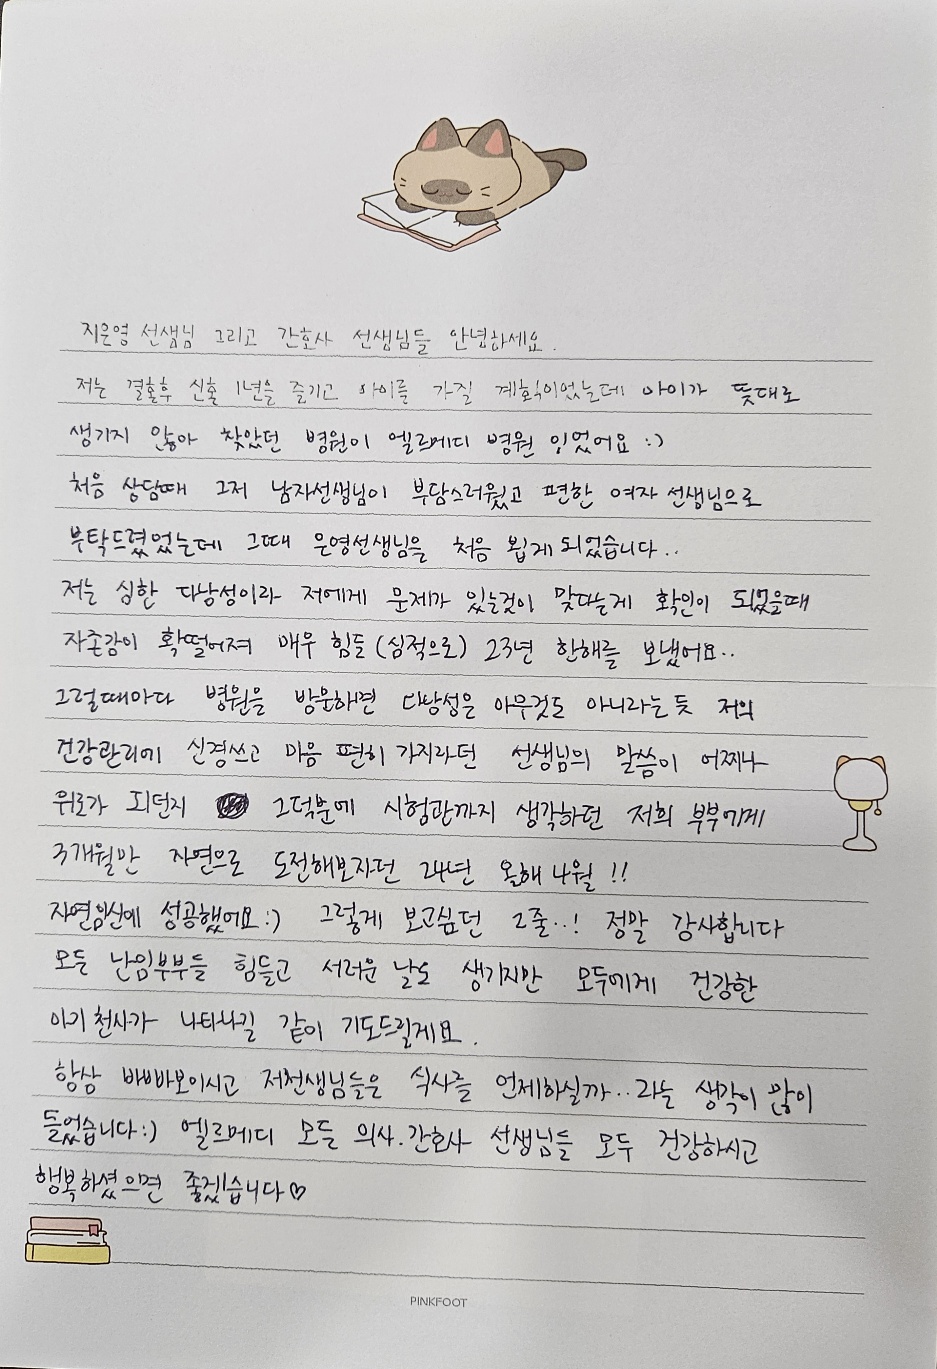 지은영 선생님 그리고 간호사 선생님들 안녕하세요.
저는 결혼후 신혼 1년을 즐기고 아이를 가질 계획이었는데 아이가 뜻대로
생기지 않아 찾았던 병원이 엘르메디 병원 이었어요 :)
처음 상담때 그저 남자선생님이 부담스러웠고 편한 여자 선생님으로
부탁드렸었는데 그때 은영선생님을 처음 뵙게 되었습니다..
저는 심한 다낭성이라 저에게 문제가 있는것이 맞다는게 확인이 되었을때
자존감이 확떨어져 매우 힘들 (심적으로) 23년 한해를 보냈어요..
그럴때마다 병원을 방문하면 다낭성은 아무것도 아니라는 듯 저의
건강관리에 신경쓰고 마음 편히 가지라던 선생님의 말씀이 어찌나
위로가 되던지 그덕분에 시험관까지 생각하던 저희 부부에게
3개월만 자연으로 도전해보자던 24년 올해 4월 !!
자연임신에 성공했어요 :) 그렇게 보고싶던 2줄..! 정말 감사합니다
모든 난임부부들 힘들고 서러운 날도 생기지만 모두에게 건강한
아기 천사가 나타나길 같이 기도드릴게요.
항상 바빠보이시고 저 선생님들은 식사를 언제하실까..라는 생각이 많이
들었습니다 :) 엘르메디 모든 의사.간호사 선생님들 모두 건강하시고
행복하셨으면 좋겠습니다♡
PINKFOOT